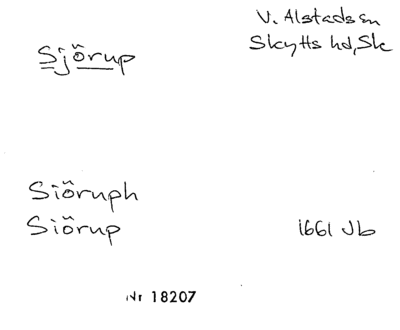 V. Alstads sn
Sjörup
Skytts hd, Sk
Siöruph
Siörup
1661 Jb
Nr 18207